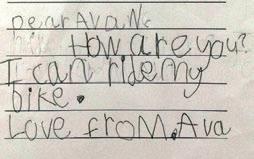 Dear Ava Nc
How are you?
I can ride my
bike.
Love from Ava